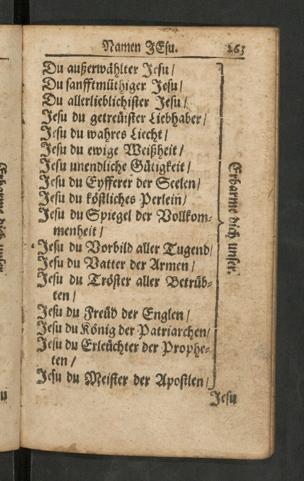 Namen JEsu. 263
Du außerwählter Jesu/
Du sanfftmüthiger Jesu/
Du allerlieblichister Jesu/
Jesu du getreüister Liebhaber/
Jesu du wahres Liecht/
Jesu du ewige Weißheit/
Jesu unendliche Gütigkeit/
Jesu du Eyfferer der Seelen/
Jesu du köstliches Perlein/
Jesu du Spiegel der Vollkom-
menheit/
Jesu du Vorbild aller Tugend/
Jesu du Vatter der Armen/
Jesu du Tröster aller Betrüb-
ten/
Jesu du Freüd der Englen/
Jesu du König der Patriarchen/
Jesu du Erleüchter der Prophe-
ten/
Jesu du Meister der Apostlen/
Erbarme dich unser.
Jesu